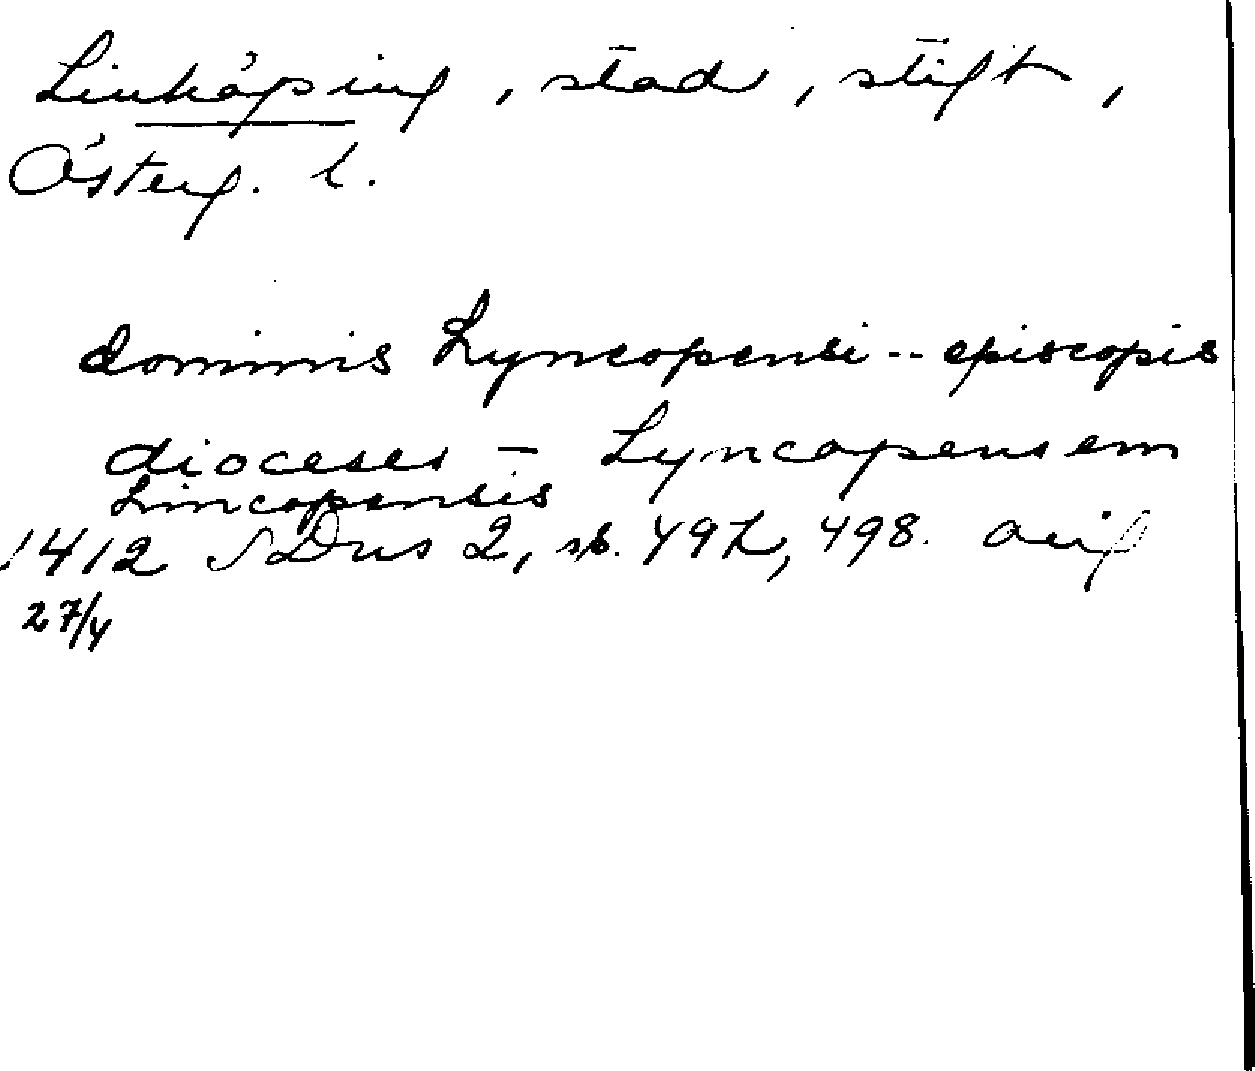 Linköping, stad, stift,
Österg. l.
dominis Lyncopensi -- episcopis
dioceses - Lyncopensem
Lincopensis
1412 SDns 2, s. 497, 498. avig
27/4